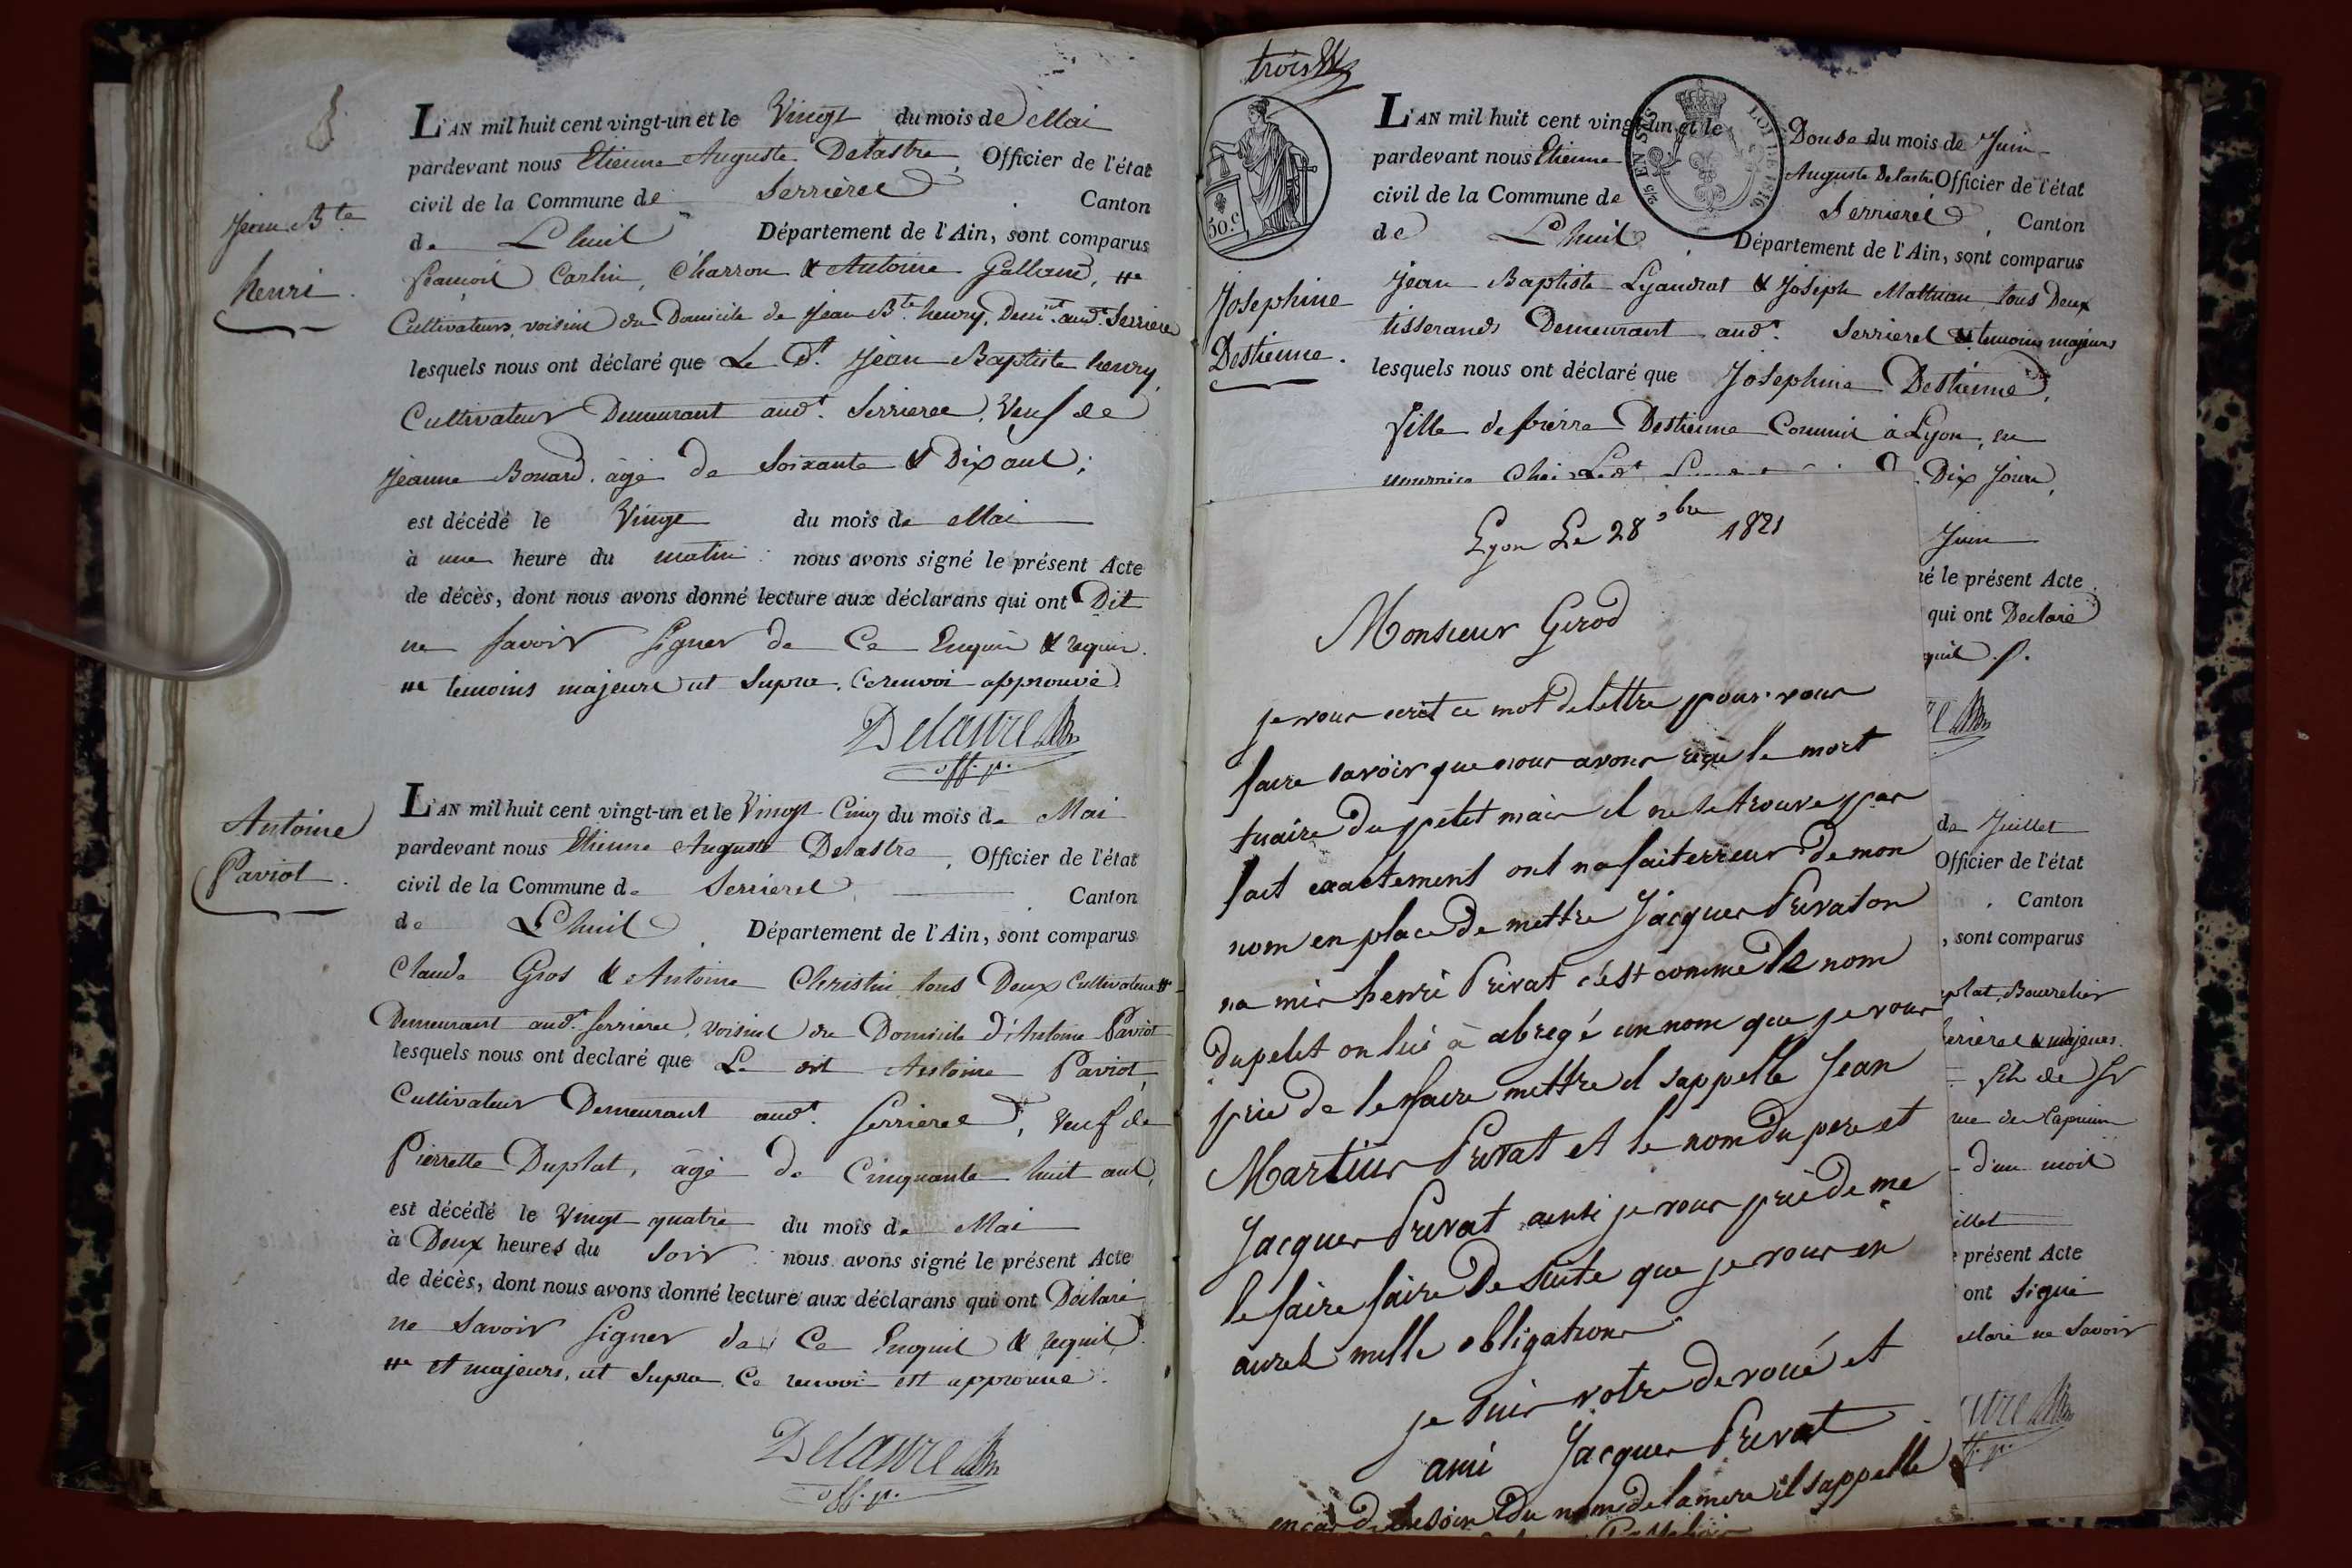 Jean Bte
henri
L'AN mil huit cent vingt-un et le Vingt du mois de Mai
pardevant nous Etienne Auguste Delastre, Officier de l'état
civil de la Commune de Serrieres Canton
de Lhuis Département de l'Ain, sont comparus
francois Carlin, Charron & Antoine Galland,
Cultivateurs, voisins du Domicile de Jean Bte henry, Demt audt Serriere
lesquels nous ont déclaré que Le dt Jean Baptiste henry,
Cultivateur Demeurant audt Serrieres, Veuf de
Jeanne Bonard, âgé de Soixante & Dix ans;
est décédé le Vingt du mois de Mai
à une heure du matin : nous avons signé le présent Acte
de décès, dont nous avons donné lecture aux déclarans qui ont Dit
ne savoir signer de Ce Enquis & requis
temoins majeurs ut Supra, Ce renvoi approuvé
Delastre
off. p.
Antoine
Paviot
L'AN mil huit cent vingt-un et le Vingt Cinq du mois de Mai
pardevant nous Etienne Auguste Delastre, Officier de l'état
civil de la Commune de Serrieres Canton
de Lhuis Département de l'Ain, sont comparus
Claude Gros & Antoine Christin tous Deux Cultivateurs
Demeurant audt Serrieres, voisins du Domicile d'Antoine Paviot
lesquels nous ont declaré que Le dit Antoine Paviot,
Cultivateur Demeurant audt Serrieres, Veuf de
Pierrette Duplat, âgé de Cinquante huit ans,
est décédé le Vingt quatre du mois de Mai
à Deux heures du Soir : nous avons signé le présent Acte
de décès, dont nous avons donné lecture aux déclarans qui ont Déclaré
ne Savoir signer de Ce Enquis & requis
et majeurs, ut Supra. Ce renvoi est approuvé.
Delastre
off. p.
trois
50.c
2/5 EN SUS
LOI DE 1816
Josephine
Destienne.
L'AN mil huit cent vingt-un et le Douse du mois de Juin
pardevant nous Etienne Auguste Delastre Officier de l'état
civil de la Commune de Serrieres, Canton
de Lhuis Département de l'Ain, sont comparus
Jean Baptiste Lyaudrat & Joseph Mathian tous Deux
tisserands Demeurant audt Serrieres & temoins majeurs
lesquels nous ont déclaré que Josephine Destienne,
fille de pierre Destienne Commis à Lyon, en
nourrice Chés Ledt Dix Jours,
Juin
né le présent Acte
qui ont Declaré
quis. p.
Lyon Le 28 9bre 1821
Monsieur Gerod
je vous ecrit ce mot de lettre pour vous
faire savoir que nous avons reçu le mort
tuaire du petit mais il ne se trouve pas
fait exactement ont na fait erreur de mon
nom en place de mettre Jacques Privat on
na mis henri Privat c'est comme le nom
du petit on lui à abregé un nom que je vous
prie de le faire mettre il s'appelle Jean
Martiur Privat et le nom du pere et
Jacques Privat ainsi je vous prie de me
le faire faire de suite que je vous en
aurez mille obligations
je suis votre devoué et
ami Jacques Privat
en cas de besoin du nom de la mere il s'appelle
de Juillet
Officier de l'état
. Canton
, sont comparus
plat, Bourrelier
errieres & majeurs
fils de
rue des Capucins
d'un mois
illet
présent Acte
ont signé
claré ne Savoir